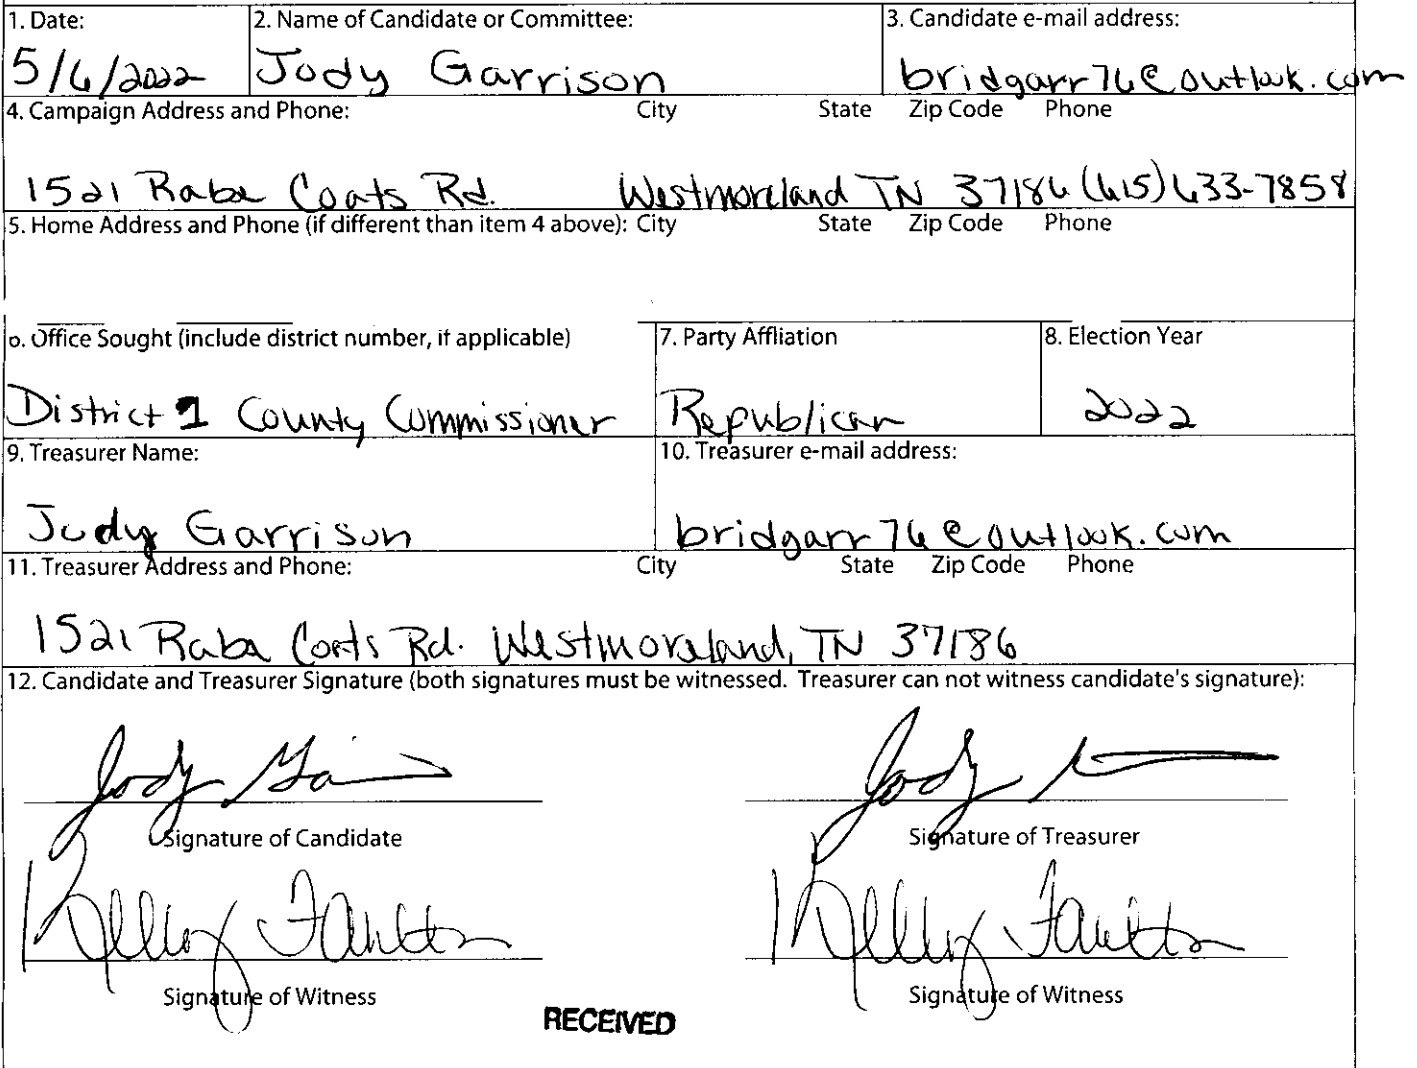 1. Date: 2. Name of Candidate or Committee: 3. Candidate e-mail address:
5/6/2022 Jody Garrison bridgarr76@outlook.com
4. Campaign Address and Phone: City State Zip Code Phone
1521 Raba Coats Rd. Westmoreland TN 37186 (615) 633-7858
5. Home Address and Phone (if different than item 4 above): City State Zip Code Phone
o. Office Sought (include district number, if applicable) 7. Party Affliation 8. Election Year
District 1 County Commissioner Republican 2022
9. Treasurer Name: 10. Treasurer e-mail address:
Jody Garrison bridgarr76@outlook.com
11. Treasurer Address and Phone: City State Zip Code Phone
1521 Raba Coats Rd. Westmoreland, TN 37186
12. Candidate and Treasurer Signature (both signatures must be witnessed. Treasurer can not witness candidate's signature):
Jody Jody
Signature of Candidate Signature of Treasurer
Kelly Kelly
Signature of Witness Signature of Witness
RECEIVED